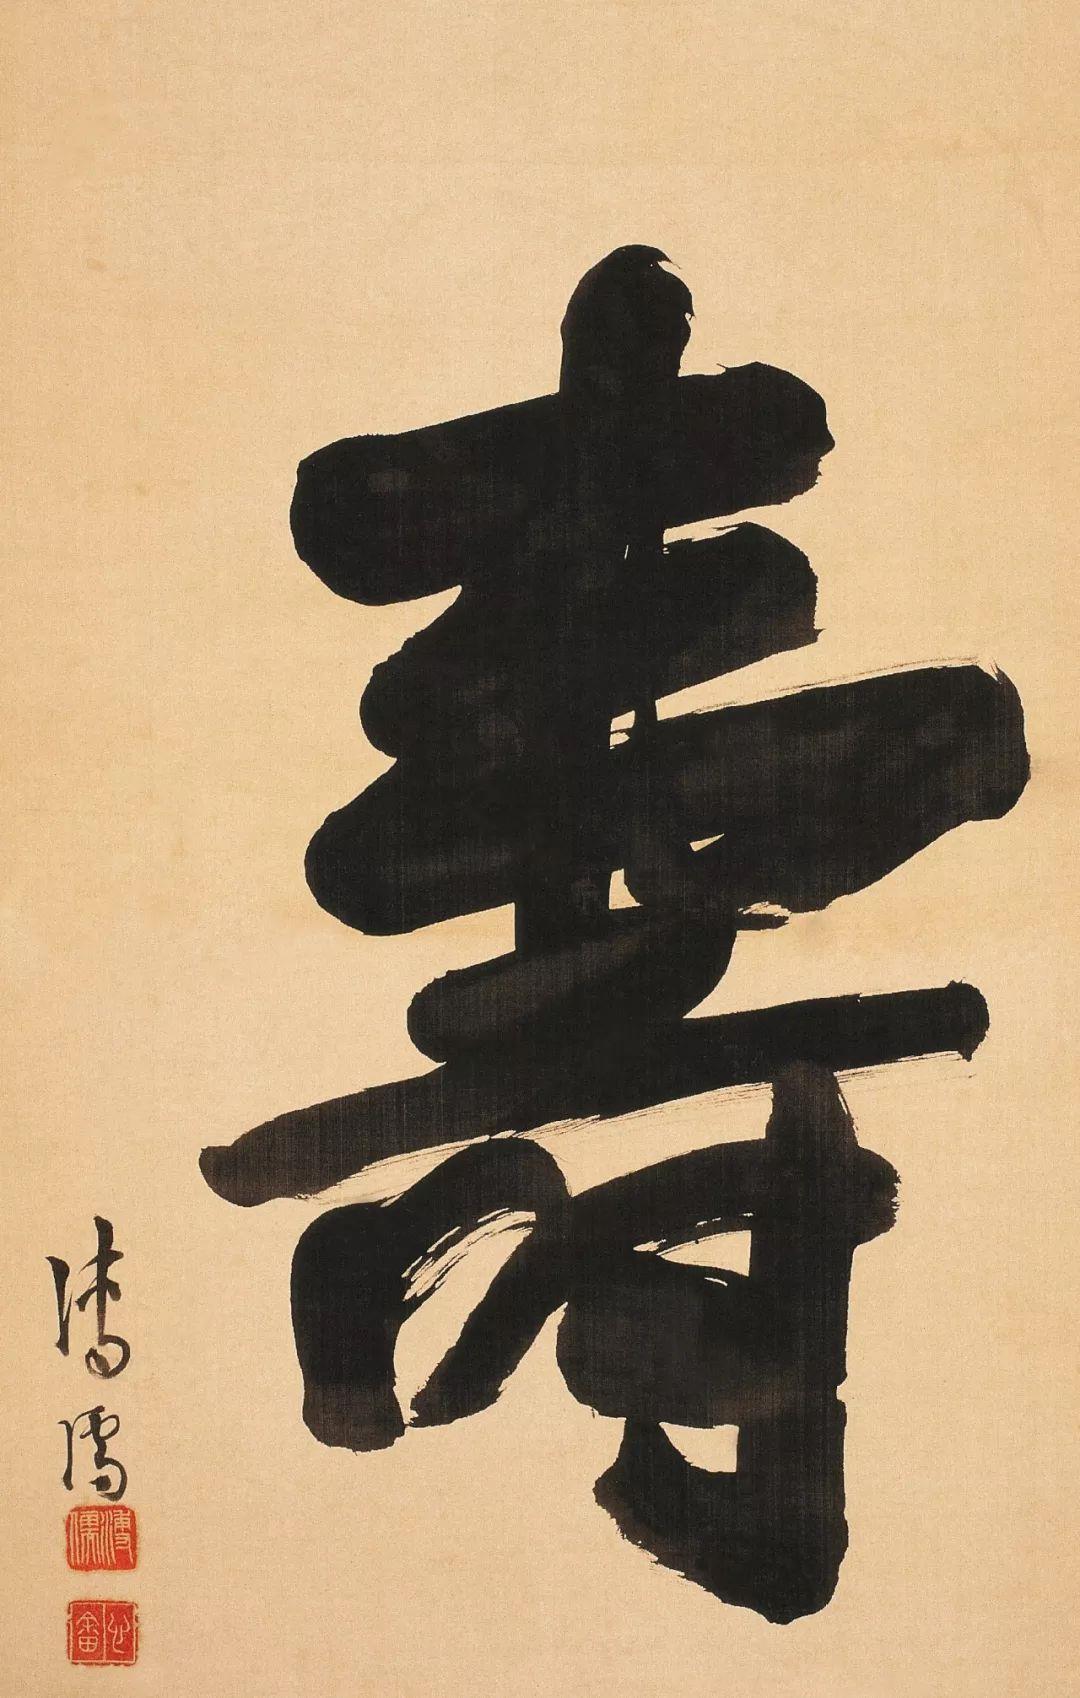 壽
溥儒
溥儒
心畬